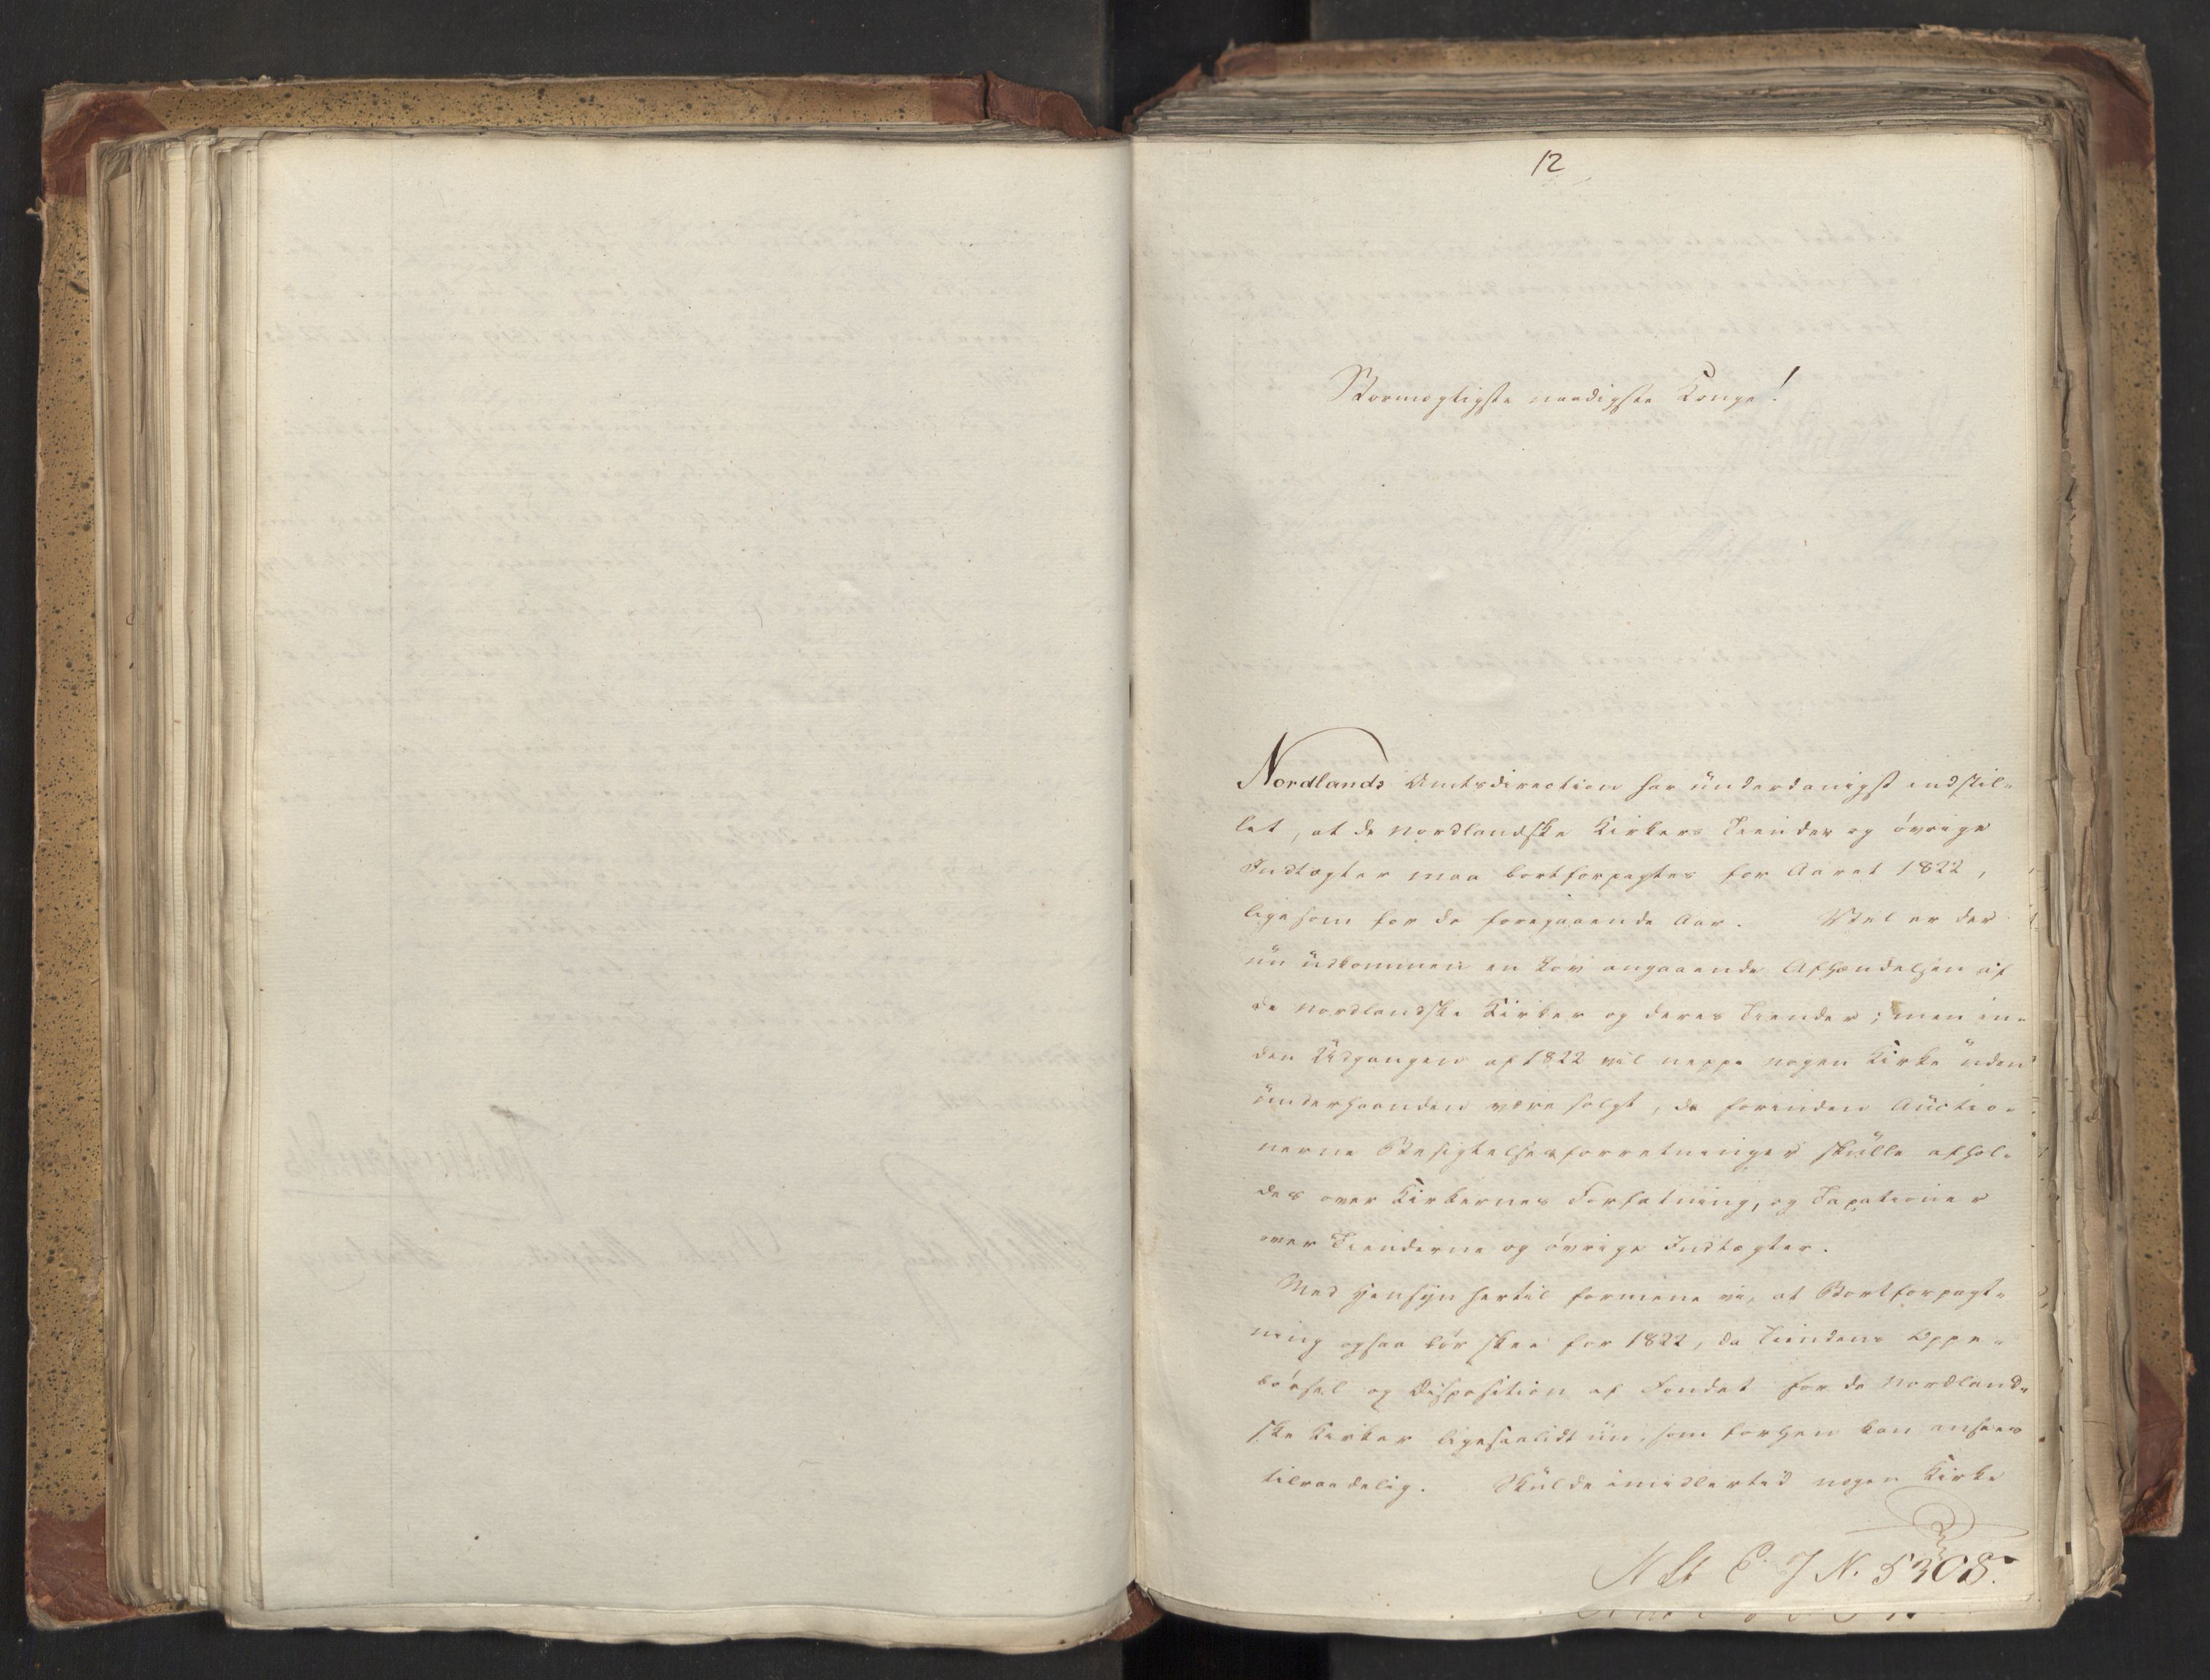 12
Stormægtigste naadigste Konge!
Nordlands Amtsdirection har underdanigst indstil-
let, at de nordlandske Kirkers Tiender og øvrige
Indtægter maa bortforpagtes for Aaret 1822,
ligesom for de foregaaende Aar. Vel er der
nu udkommen en Lov angaaende Afhændelsen af
de nordlandske Kirker og deres Tiender; men in-
den Udgangen af 1822 vil neppe nogen Kirke uden
underhaanden være solgt, da forinden Auctio-
nerne Besigtelsesforretninger skulle afhol-
des over Kirkernes Forfatning, og Taxationer
over Tienderne og øvrige Indtægter.
Med Hensyn hertil formene vi, at Bortforpagt-
ning ogsaa bør skee for 1822, da Tiendens Oppe-
børsel og Disposition af Fondet for de nordland-
ske Kirker ligesaalidt nu, som forhen kan ansees
tilraadelig. Skulde imidlertid nogen Kirke
N. 5308.